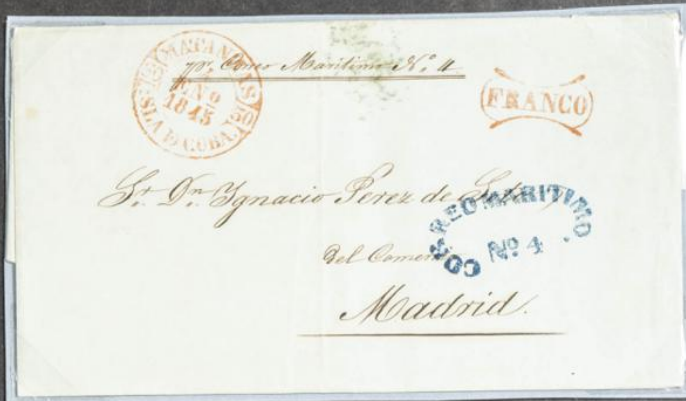 MATANZAS
ENO
1845
ISLA D CUBA
pr. Correo Marítimo No. 4
FRANCO
Sr. Dn. Ygnacio Perez de
CORREO MARITIMO
No 4
Del Comercio
Madrid.